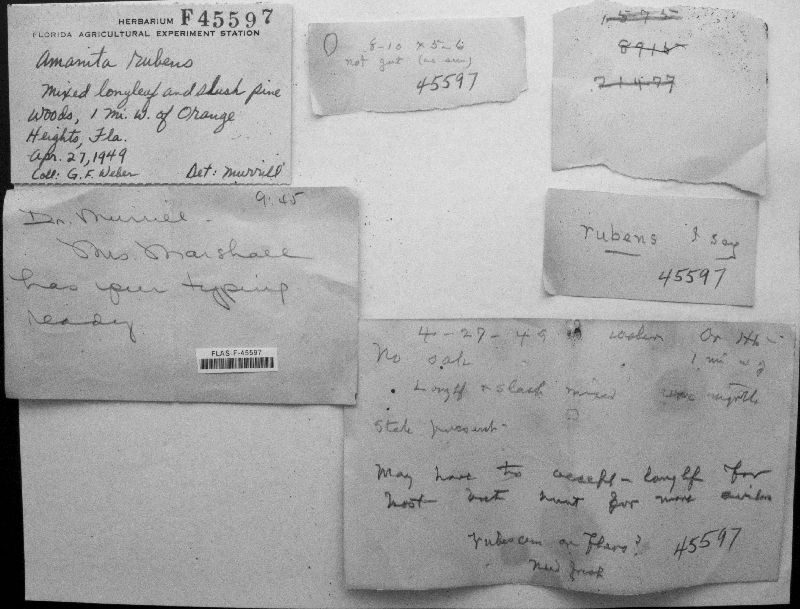 HERBARIUM F45597
FLORIDA AGRICULTURAL EXPERIMENT STATION
Amanita rubens
Mixed longleaf and slash pine
woods, 1 mi. w. of Orange
Heights, Fla.
Apr. 27, 1949
Coll: G. F. Weber Det: Murrill
8-10 x 5-6
not gut (as seen)
45597
1575
8915
21477
9:45
Dr. Murrill -
Mrs. Marshall
has your typing
ready
FLAS-F-45597
rubens I say
45597
4-27-49 Weber Or Hts -
No oak 1 mi w of
Longlf & slash mixed wax myrtle
State present -
May have to accept - longlf for
host - but hunt for more
rubescens or flavo?
Need fresh
45597